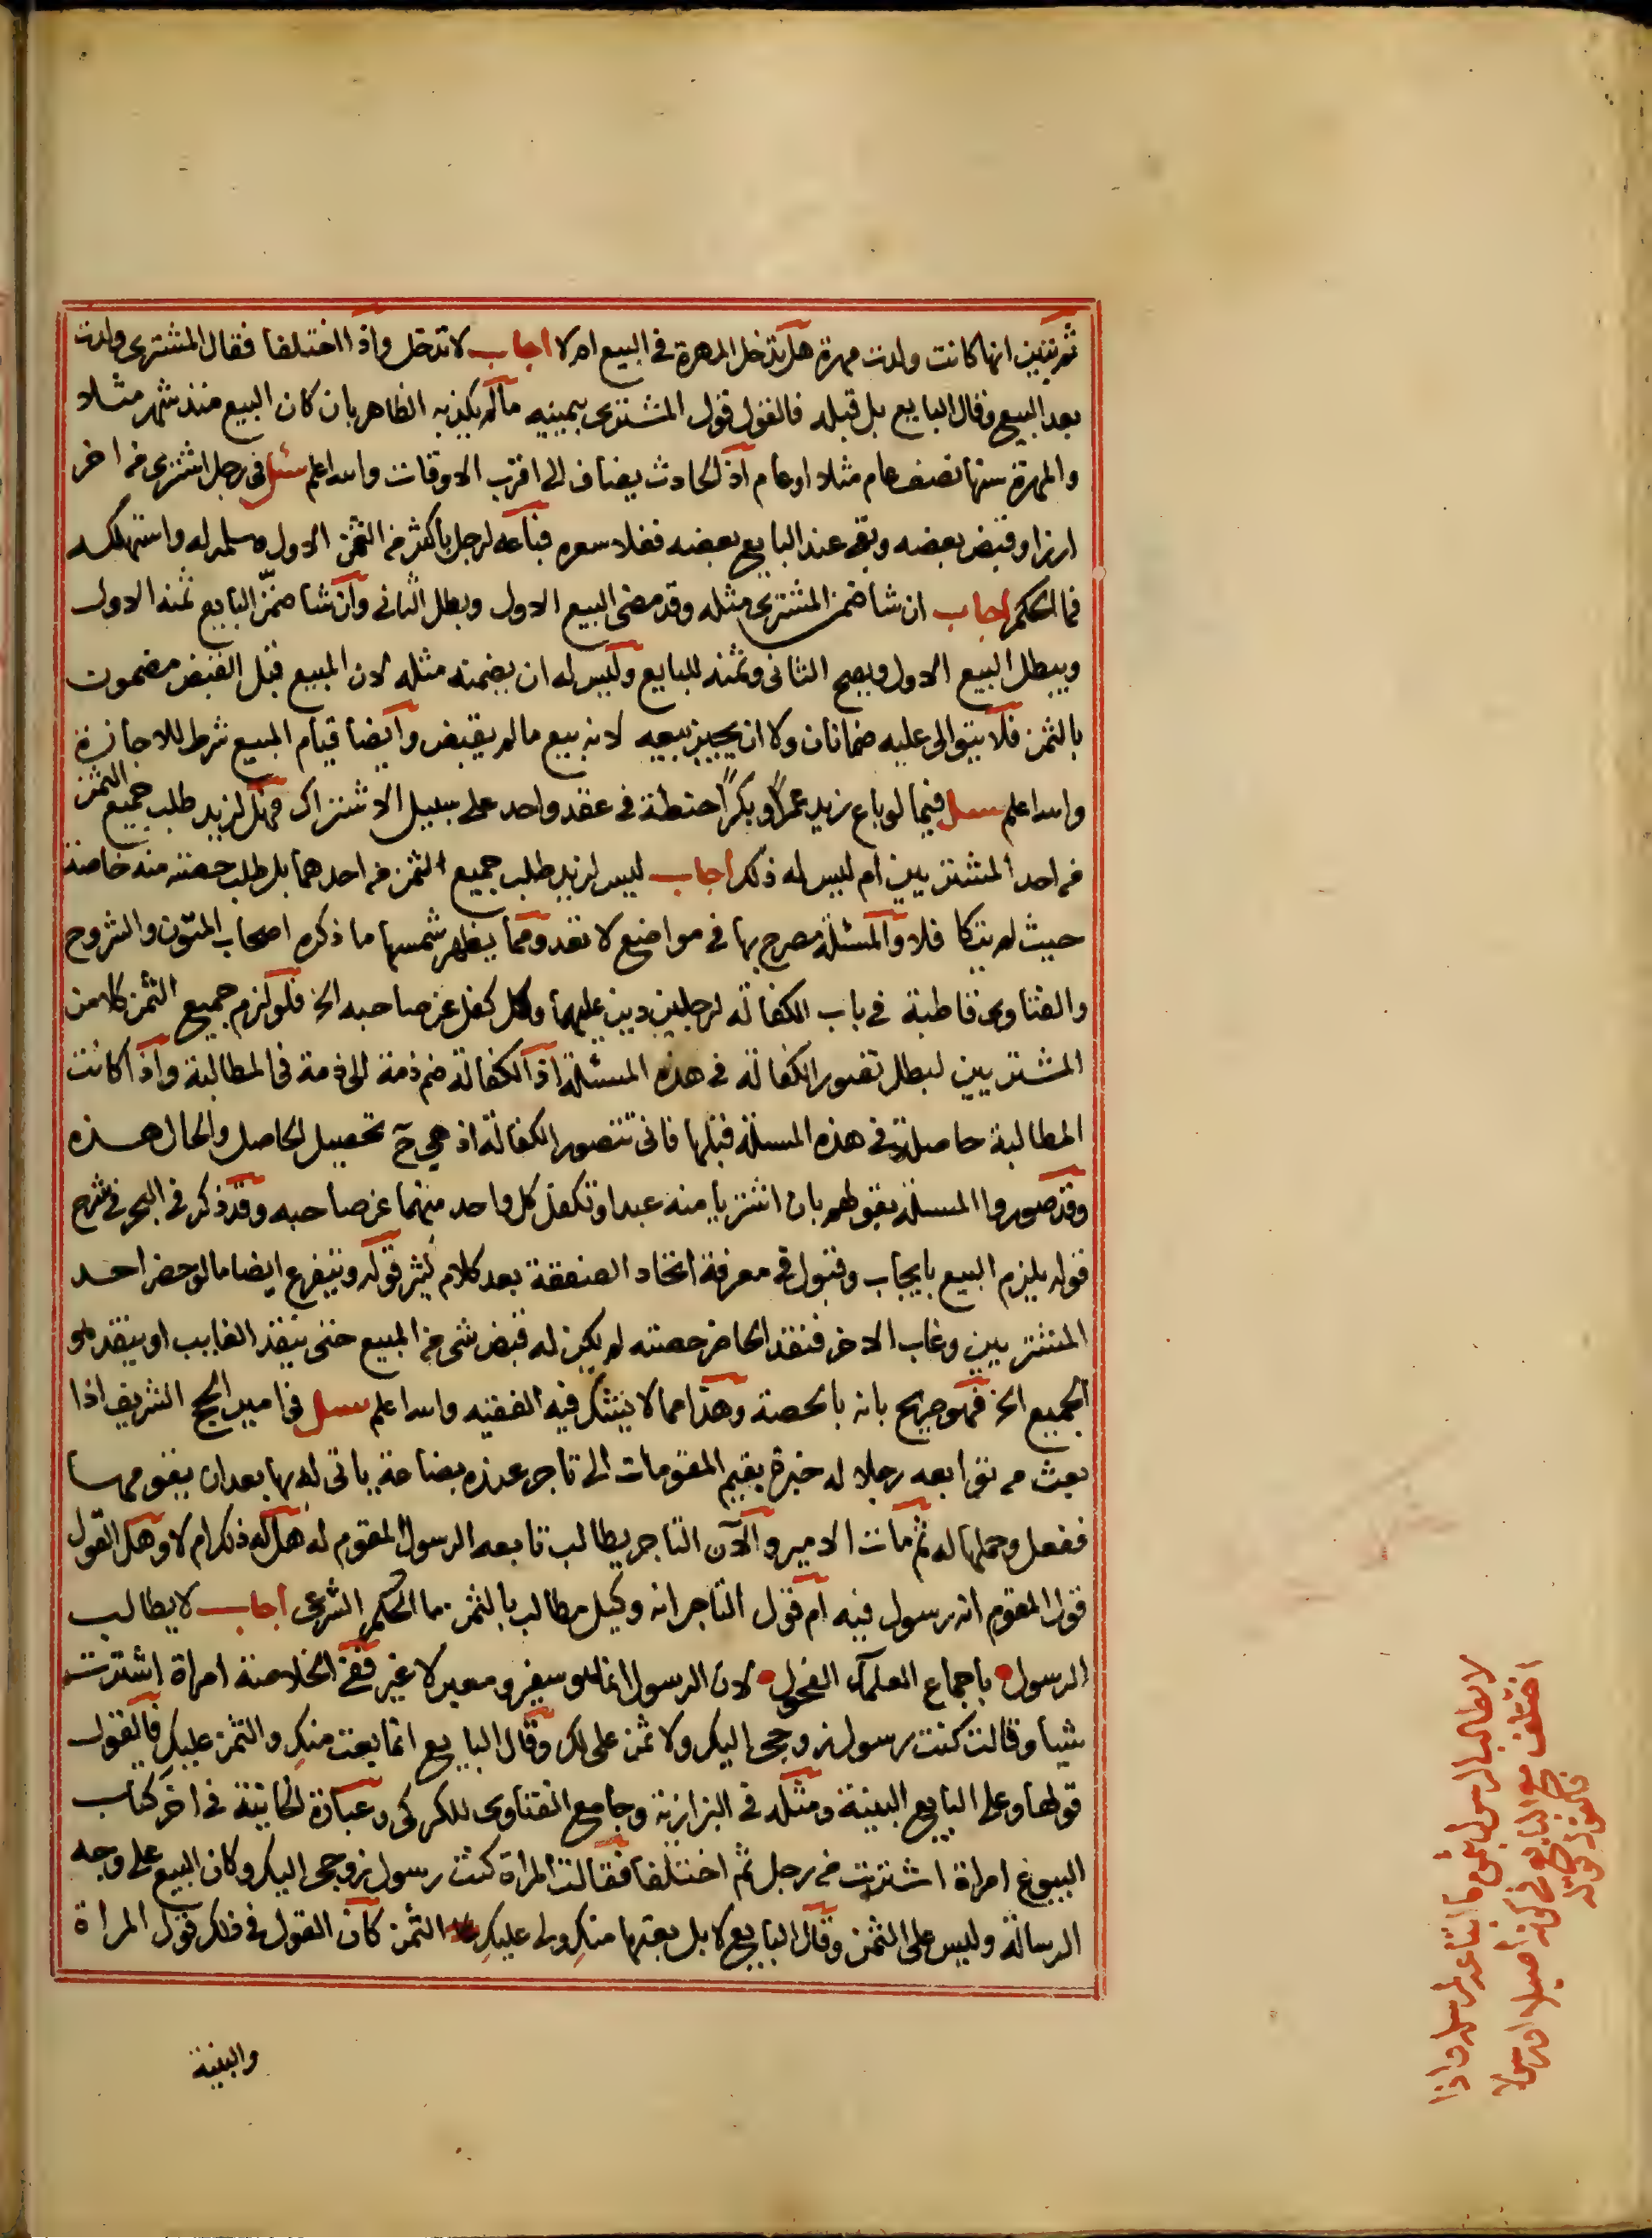 ثم تبين انها كانت ولدت مهرة هل تدخل المهرة في البيع ام لا اجاب لا تدخل واذا اختلفا فقال المشترى ولدت
بعد البيع وقال البايع بل قبله فالقول قول المشترى بيمينه ما لم يكذبه الظاهر بان كان البيع منذ شهر مثلا
والمهرة سنها نصف عام مثلا او عام اذ الحادث يضاف الى اقرب الاوقات والله اعلم سئل في رجل اشترى من اخر
ارزا وقبض بعضه وبقى عند البايع بعضه فغلا سعره فباعه لرجل باكثر من الثمن الاول وسلمه له واستهلكه
فما الحكم اجاب ان شا ضمن المشترى مثله وقد مضى البيع الاول وبطل الثانى وان شا ضمّن البايع ثمنه الاول
ويبطل البيع الاول ويصح الثانى وثمنه للبايع وليس له ان يضمنه مثله لان المبيع قبل القبض مضمون
بالثمن فلا يتوالى عليه ضمانان ولا ان يجيز بيعه لانه بيع ما لم يقبض وايضا قيام المبيع شرط للاجازة
والله اعلم سئل فيما لو باع زيد عمرًا وبكرًا حنطة في عقد واحد على سبيل الاشتراك فهل لزيد طلب جميع الثمن
من احد المشتريين ام ليس له ذلك اجاب ليس لزيد طلب جميع الثمن من احدهما بل طلب حصته منه خاصة
حيث لم يتكافلا والمسئلة مصرح بها في مواضع لا تعد ومما يظهر شمسها ما ذكره اصحاب المتون والشروح
والفتاوى قاطبة في باب الكفالة لرجلين دين عليهما وكل كفل عن صاحبه الخ فلو لزم جميع الثمن كلا من
المشتريين لبطل تصور الكفالة في هذه المسئلة اذ الكفالة ضم ذمة الى ذمة في المطالبة واذا كانت
المطالبة حاصلة في هذه المسئلة قبلها فانى تتصور الكفالة اذ هي ح تحصيل الحاصل والحال هذه
وقد صوروا المسئلة بقولهم بان اشتريا منه عبدا وتكفل كل واحد منهما عن صاحبه وقد ذكر في البحر في شرح
قوله يلزم البيع بايجاب وقبول في معرفة اتحاد الصفقة بعد كلام كثير قوله ويتفرع ايضا ما لو حضر احد
المشتريين وغاب الاخر فنقد الحاضر حصته لم يكن له قبض شى من المبيع حتى ينقد الغايب او ينقد هو
الجميع الخ فهو صريح بانه بالحصة وهذا مما لا يشك فيه الفقيه والله اعلم سئل في امير الحج الشريف اذا
بعث من توابعه رجلا له خبرة بقيم المقومات الى تاجر عنده بضاعة ياتى له بها بعد ان يقومها
ففعل وحملها له ثم مات الامير والآن التاجر يطالب تابعه الرسول المقوم له هل له ذلك ام لا وهل القول
قول المقوم انه رسول فيه ام قول التاجر انه وكيل مطالب بالثمن ما الحكم الشرعى اجاب لا يطالب
الرسول باجماع العلماء الفحول لان الرسول انما هو سفير ومعبر لا غير ففى الخلاصة امراة اشترت
شيا وقالت كنت رسول زوجى اليك ولا ثمن على لك وقال البايع انما بعت منكِ والثمن عليكِ فالقول
قولها وعلى البايع البينة ومثله في البزازية وجامع الفتاوى للكركى وعبارة الخانية في اخر كتاب
البيوع امراة اشترت من رجل ثم اختلفا فقالت المراة كنت رسول زوجى اليك وكان البيع على وجه
الرسالة وليس على الثمن وقال البايع لا بل بعتها منكِ ولى عليكِ الثمن كان القول في ذلك قول المراة
والبينة
لا يطالب الرسول بثمن ما ابتاعه لمرسله واذا
اختلف مع البايع في كونه اصيلا او رسولا
فالقول قوله